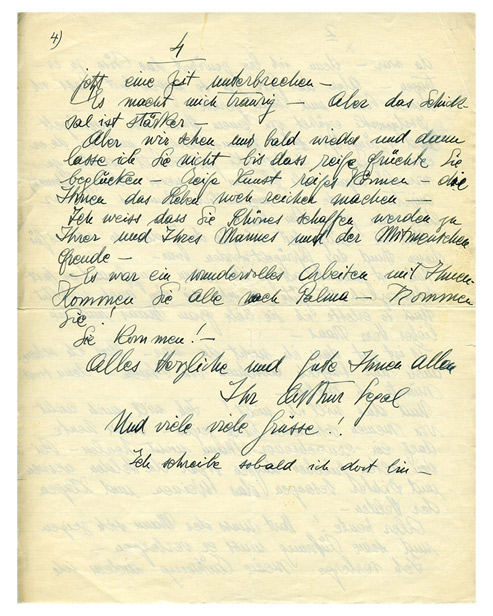 4)
4
jetzt eine Zeit unterbrechen —
Es macht mich traurig — Aber das Schick-
sal ist stärker —
Aber wir sehen uns bald wieder und dann
lasse ich Sie nicht bis dass reife Früchte Sie
beglücken — Reife Kunst reifes Können — die
Ihnen das Leben noch reicher machen —
Ich weiss dass Sie Schönes schaffen werden zu
Ihrer und Ihres Mannes und der Mitmenschen
Freude —
Es war ein wundervolles Arbeiten mit Ihnen.
Kommen Sie Alle nach Palma — Kommen
Sie!
Sie kommen! —
Alles Herzliche und Gute Ihnen Allen
Ihr Arthur Segal
Und viele viele Grüsse!!
Ich schreibe sobald ich dort bin —